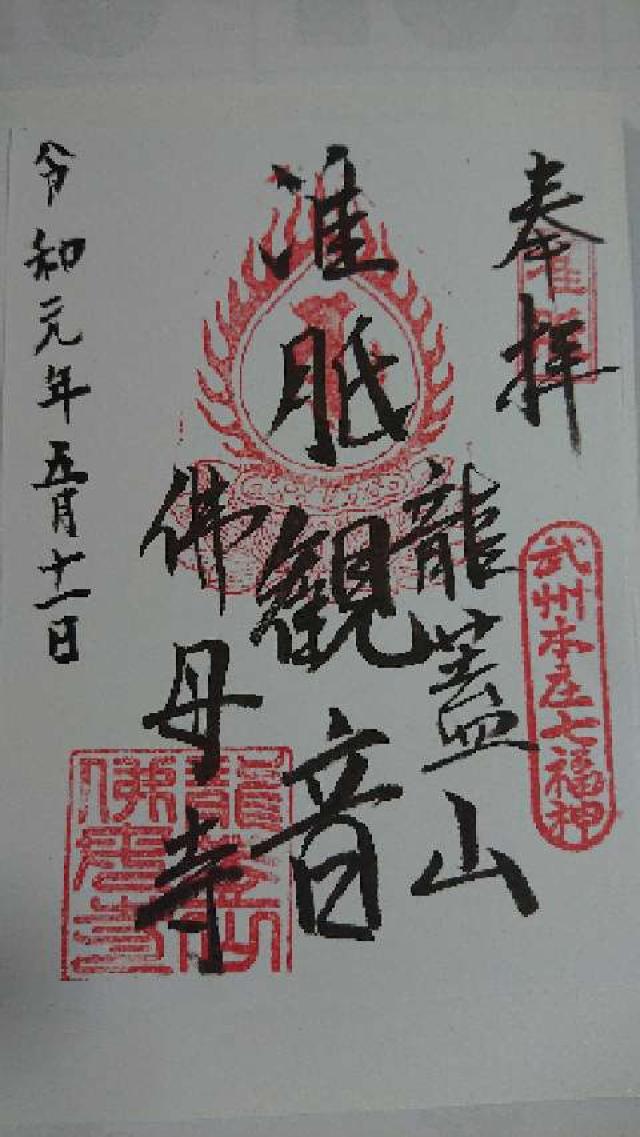 奉拝
武州本庄七福神
龍蓋山
准胝観音
佛母寺
令和元年五月十一日